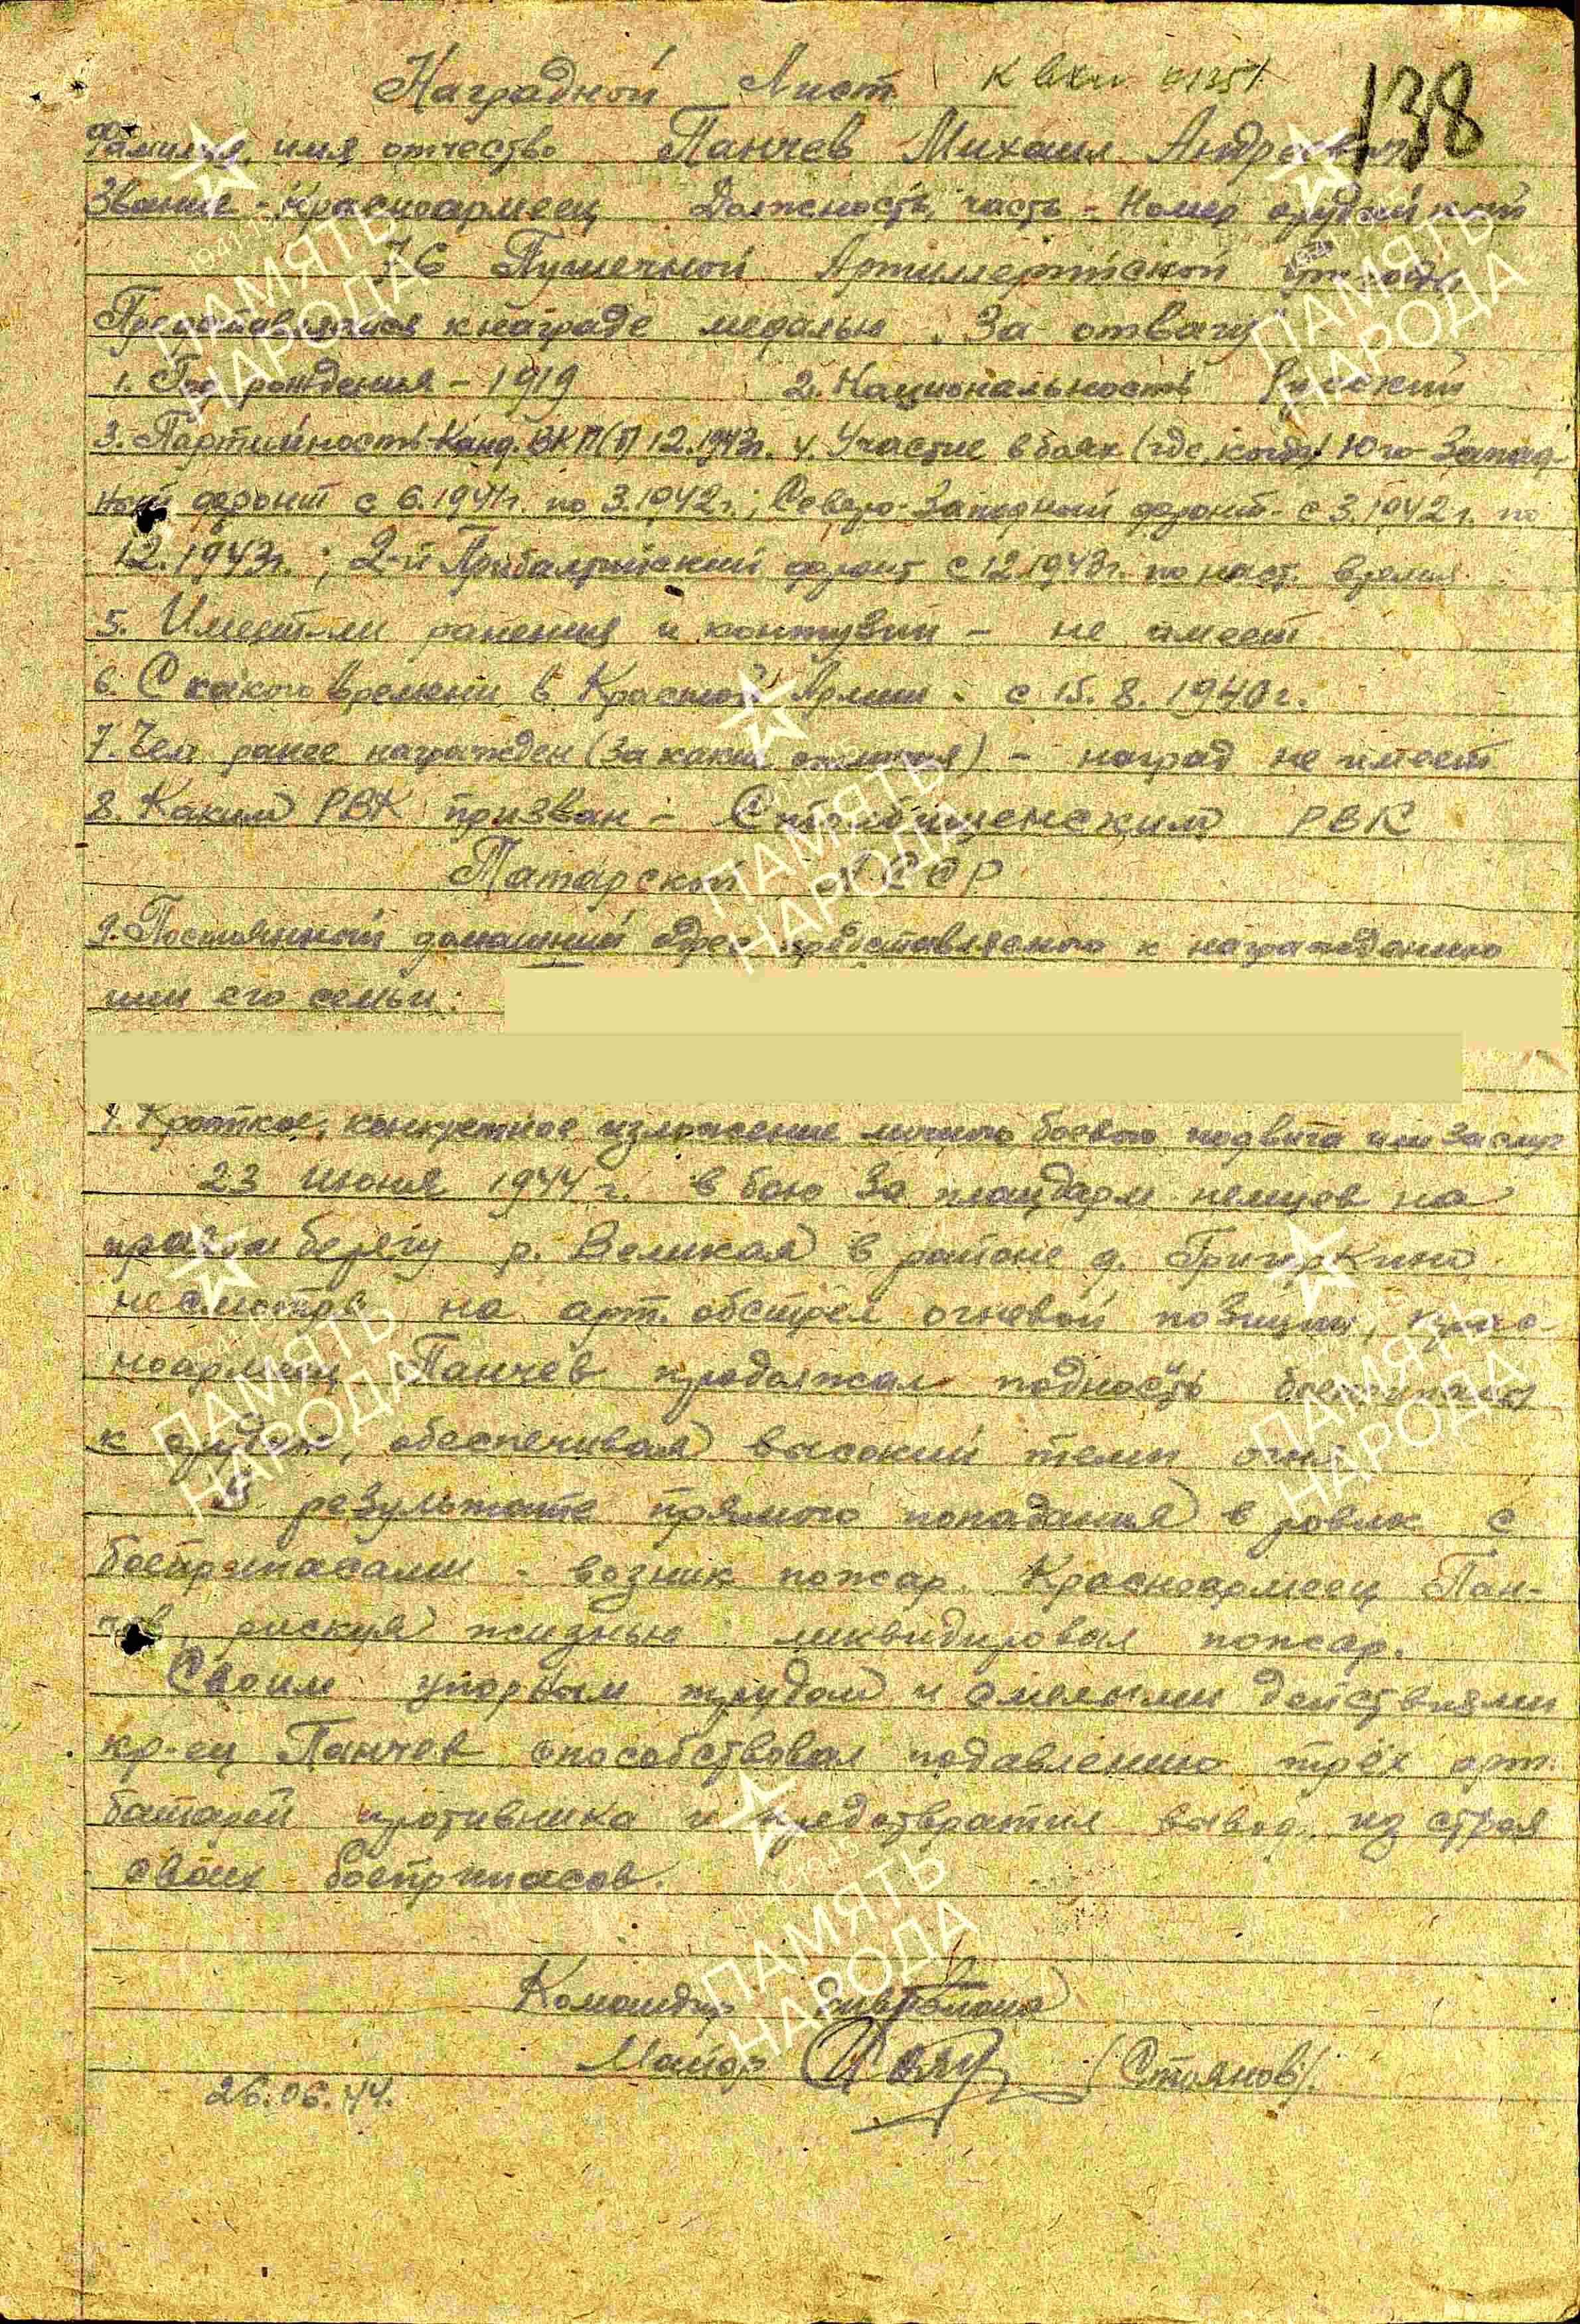 Наградной Лист К вхн
138
Фамилия, имя отчество Панчев Михаил Андреевич
Звание - Красноармеец Должность, часть - Номер орудийный
76 Пушечной Артиллерийской бригады
Представляется к награде медалью "За отвагу"
1. Год рождения - 1919 2. Национальность Русский
3. Партийность - Канд. ВКП(б) 12.1943г. 4. Участие в боях (где, когда) Юго-Запад-
ный фронт с 6.1941г. по 3.1942г.; Северо-Западный фронт - с 3.1942г. по
12.1943г.; 2-й Прибалтийский фронт с 12.1943г. по наст. время
5. Имеет-ли ранения и контузии - не имеет
6. С какого времени в Красной Армии - с 15.8.1940г.
7. Чем ранее награжден (за какие отличия) - наград не имеет
8. Каким РВК призван - РВК
Татарской АССР
9. Постоянный домашний адрес представляемого к награждению
или его семьи:
1. Краткое, конкретное изложение личного боевого подвига или заслуг
23 июня 1944 г. в бою за плацдарм немцев на
правом берегу р. Великая в районе д. Григоркино
несмотря на арт. обстрел огневой позиции, крас-
ноармеец Панчев продолжал подносить боеприпасы
к орудию, обеспечивая высокий темп огня.
В результате прямого попадания в ровик с
боеприпасами - возник пожар. Красноармеец Пан-
чев, рискуя жизнью ликвидировал пожар.
Своим упорным трудом и смелыми действиями
кр-ец Панчев способствовал подавлению трёх арт.
батарей противника и предотвратил вывод из строя
своих боеприпасов.
Командир дивизиона
Майор (Стоянов).
26.06.44.
ПАМЯТЬ
НАРОДА
1941-1945
ПАМЯТЬ
НАРОДА
1941-1945
ПАМЯТЬ
НАРОДА
1941-1945
ПАМЯТЬ
НАРОДА
1941-1945
ПАМЯТЬ
НАРОДА
1941-1945
ПАМЯТЬ
НАРОДА
1941-1945